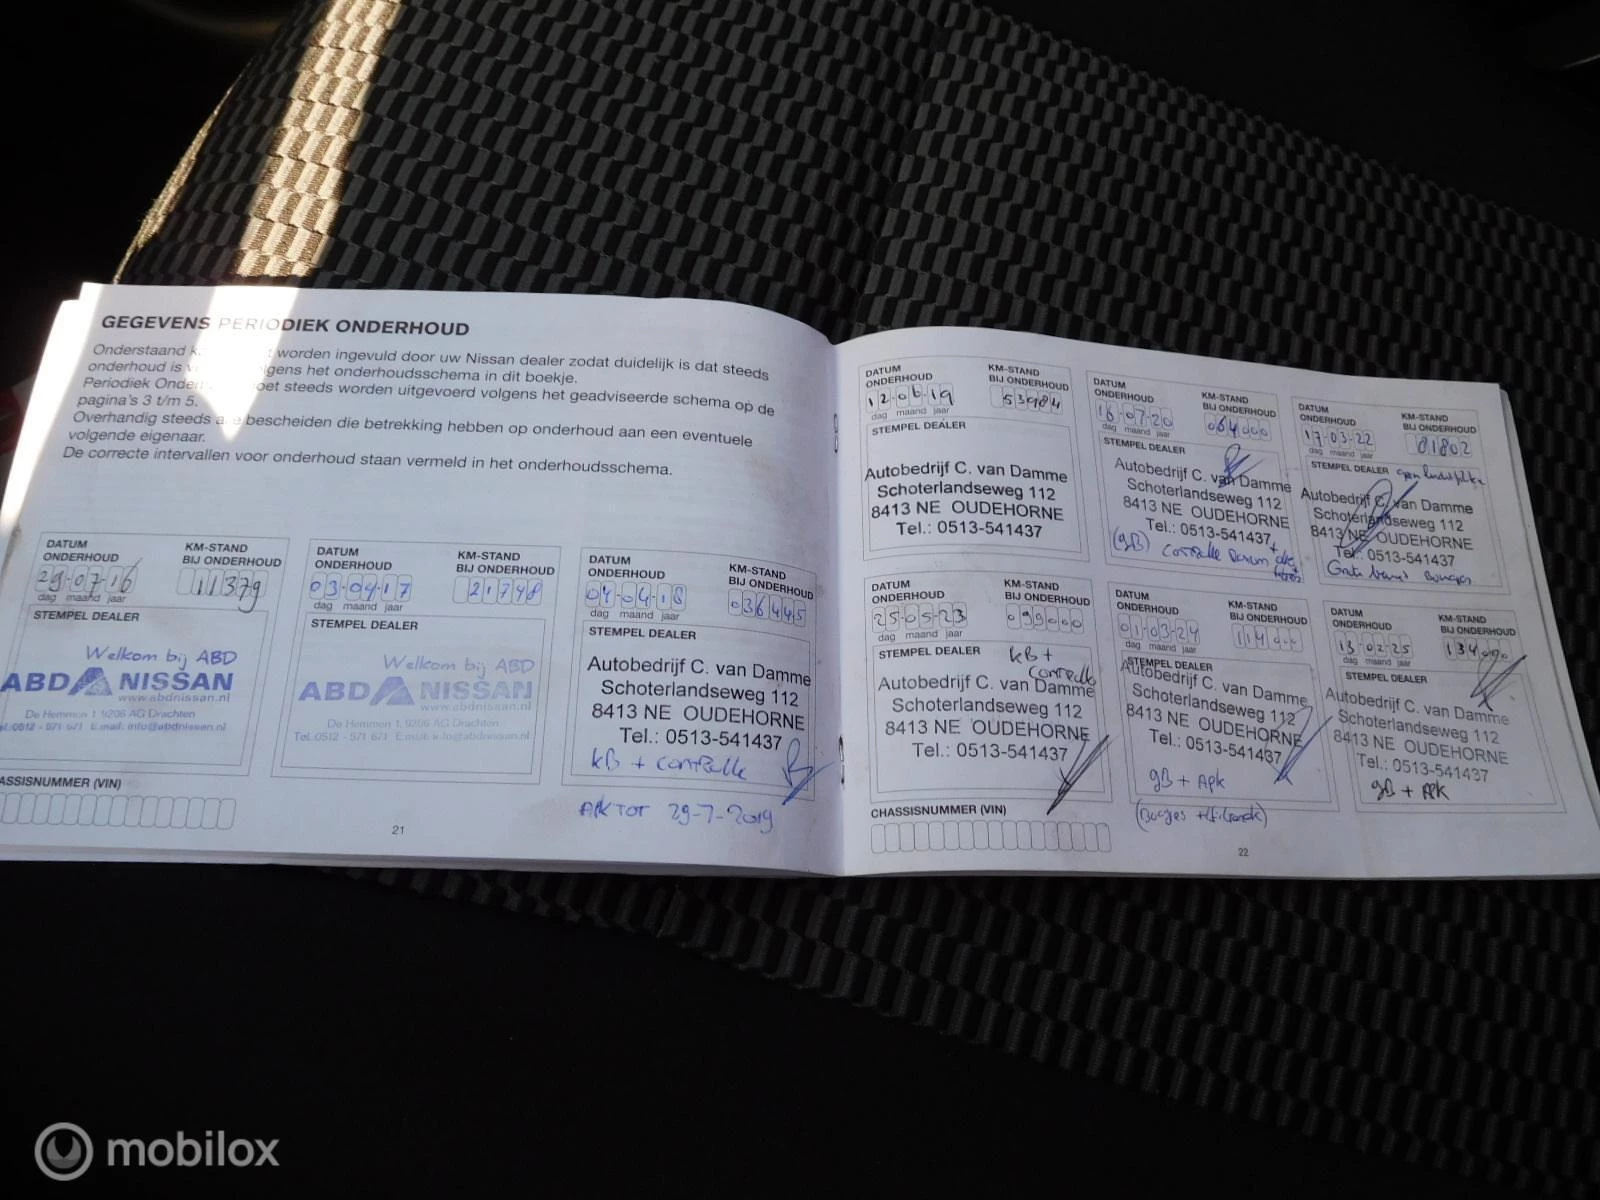 GEGEVENS PERIODIEK ONDERHOUD
Onderstaand worden ingevuld door uw Nissan dealer zodat duidelijk is dat steeds
onderhoud is volgens het onderhoudsschema in dit boekje.
Periodiek moet steeds worden uitgevoerd volgens het geadviseerde schema op de
pagina's 3 t/m 5.
Overhandig steeds alle bescheiden die betrekking hebben op onderhoud aan een eventuele
volgende eigenaar.
De correcte intervallen voor onderhoud staan vermeld in het onderhoudsschema.
DATUM ONDERHOUD KM-STAND BIJ ONDERHOUD
29-07-16 11379
dag maand jaar
STEMPEL DEALER
Welkom bij ABD
ABD NISSAN
www.abdnissan.nl
De Hemmen 1, 9206 AG Drachten
Tel.:0512 - 571 671 E.mail: info@abdnissan.nl
DATUM ONDERHOUD KM-STAND BIJ ONDERHOUD
03-04-17 21748
dag maand jaar
STEMPEL DEALER
Welkom bij ABD
ABD NISSAN
www.abdnissan.nl
De Hemmen 1, 9206 AG Drachten
Tel.:0512 - 571 671 E.mail: info@abdnissan.nl
DATUM ONDERHOUD KM-STAND BIJ ONDERHOUD
04-04-18 036445
dag maand jaar
STEMPEL DEALER
Autobedrijf C. van Damme
Schoterlandseweg 112
8413 NE OUDEHORNE
Tel.: 0513-541437
KB + controlle
APK TOT 29-7-2019
CHASSISNUMMER (VIN)
21
DATUM ONDERHOUD KM-STAND BIJ ONDERHOUD
12-06-19 53984
dag maand jaar
STEMPEL DEALER
Autobedrijf C. van Damme
Schoterlandseweg 112
8413 NE OUDEHORNE
Tel.: 0513-541437
DATUM ONDERHOUD KM-STAND BIJ ONDERHOUD
16-07-20 064000
dag maand jaar
STEMPEL DEALER
Autobedrijf C. van Damme
Schoterlandseweg 112
8413 NE OUDEHORNE
Tel.: 0513-541437
(gB) controlle
DATUM ONDERHOUD KM-STAND BIJ ONDERHOUD
17-03-22 81802
dag maand jaar
STEMPEL DEALER
Autobedrijf C. van Damme
Schoterlandseweg 112
8413 NE OUDEHORNE
Tel.: 0513-541437
DATUM ONDERHOUD KM-STAND BIJ ONDERHOUD
25-05-23 099000
dag maand jaar
STEMPEL DEALER
KB +
controlle
Autobedrijf C. van Damme
Schoterlandseweg 112
8413 NE OUDEHORNE
Tel.: 0513-541437
DATUM ONDERHOUD KM-STAND BIJ ONDERHOUD
01-03-24
dag maand jaar
STEMPEL DEALER
Autobedrijf C. van Damme
Schoterlandseweg 112
8413 NE OUDEHORNE
Tel.: 0513-541437
gB + APK
DATUM ONDERHOUD KM-STAND BIJ ONDERHOUD
13-02-25 134000
dag maand jaar
STEMPEL DEALER
Autobedrijf C. van Damme
Schoterlandseweg 112
8413 NE OUDEHORNE
Tel.: 0513-541437
gB + APK
CHASSISNUMMER (VIN)
22
mobilox